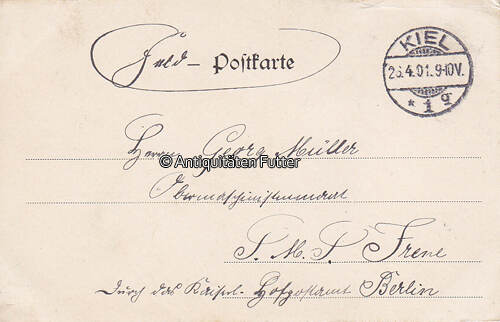 Feld - Postkarte
KIEL
26.4.01.9-10V.
* 1 g
Herrn Georg Müller
© Antiquitäten Futter
Obermaschinistenmaat
S. M. S. Irene
Durch das Kaiserl. Hofpostamt Berlin